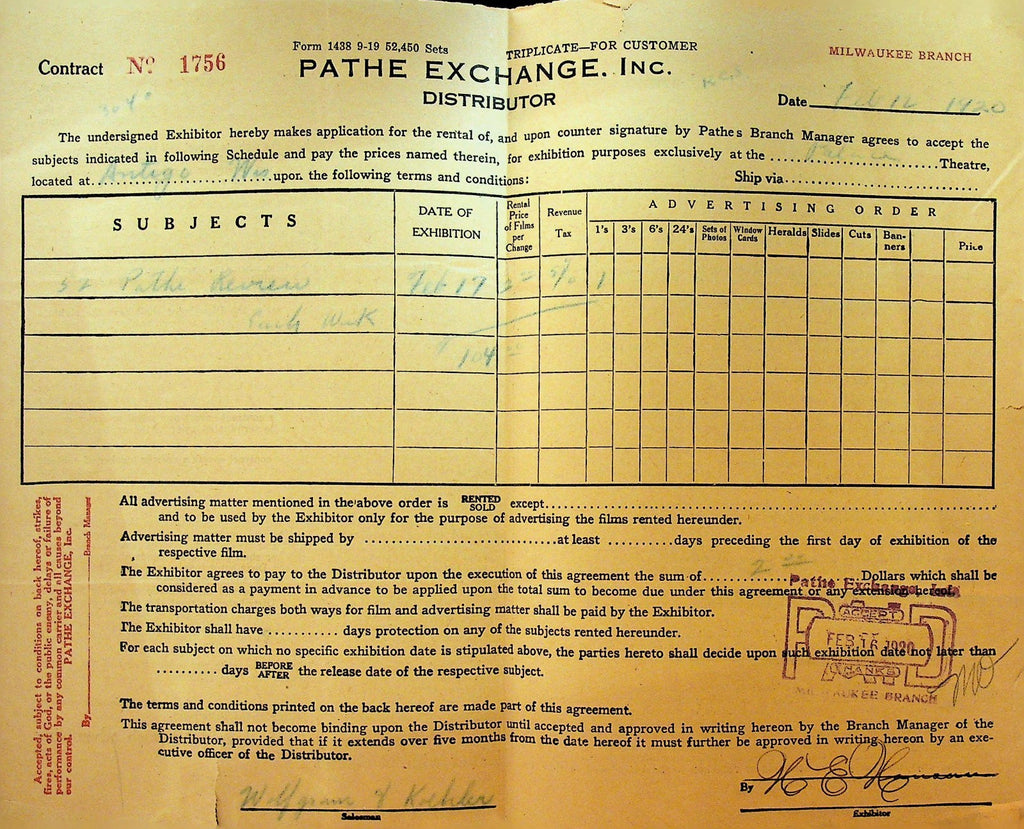 Form 1438 9-19 52,450 Sets
TRIPLICATE—FOR CUSTOMER
MILWAUKEE BRANCH
Contract Nº 1756
PATHE EXCHANGE. INC.
DISTRIBUTOR
Date 1920
The undersigned Exhibitor hereby makes application for the rental of, and upon counter signature by Pathes Branch Manager agrees to accept the
subjects indicated in following Schedule and pay the prices named therein, for exhibition purposes exclusively at the Theatre,
located at Antigo Wis upon the following terms and conditions: Ship via
SUBJECTS
DATE OF EXHIBITION
Rental Price of Films per Change
Revenue Tax
ADVERTISING ORDER
1's 3's 6's 24's Sets of Photos Window Cards Heralds Slides Cuts Ban-ners Price
52 Pathe Review Feb 17 2 1
Each Week
104
All advertising matter mentioned in the above order is RENTED SOLD except
and to be used by the Exhibitor only for the purpose of advertising the films rented hereunder.
Advertising matter must be shipped by at least days preceding the first day of exhibition of the
respective film.
The Exhibitor agrees to pay to the Distributor upon the execution of this agreement the sum of 2 Dollars which shall be
considered as a payment in advance to be applied upon the total sum to become due under this agreement or any extension hereof.
The transportation charges both ways for film and advertising matter shall be paid by the Exhibitor.
The Exhibitor shall have days protection on any of the subjects rented hereunder.
For each subject on which no specific exhibition date is stipulated above, the parties hereto shall decide upon such exhibition date not later than
days BEFORE AFTER the release date of the respective subject.
The terms and conditions printed on the back hereof are made part of this agreement.
This agreement shall not become binding upon the Distributor until accepted and approved in writing hereon by the Branch Manager of the
Distributor, provided that if it extends over five months from the date hereof it must further be approved in writing hereon by an exe-
cutive officer of the Distributor.
Pathe Exchange
ACCEPT
PAID
FEB 16 1920
THANKS
MILWAUKEE BRANCH
Salesman
By
Exhibitor
Accepted, subject to conditions on back hereof, strikes,
fires, acts of God, or the public enemy, delays or failure of
performance by any common carrier and all causes beyond
our control. PATHE EXCHANGE, Inc.
By Branch Manager